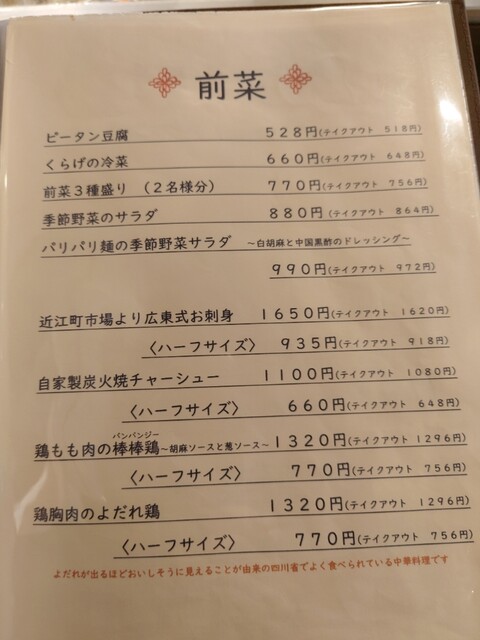 前菜
ピータン豆腐 528円(テイクアウト 518円)
くらげの冷菜 660円(テイクアウト 648円)
前菜3種盛り (2名様分) 770円(テイクアウト 756円)
季節野菜のサラダ 880円(テイクアウト 864円)
パリパリ麺の季節野菜サラダ ～白胡麻と中国黒酢のドレッシング～
990円(テイクアウト 972円)
近江町市場より広東式お刺身 1650円(テイクアウト 1620円)
〈ハーフサイズ〉 935円(テイクアウト 918円)
自家製炭火焼チャーシュー 1100円(テイクアウト 1080円)
〈ハーフサイズ〉 660円(テイクアウト 648円)
バンバンジー
鶏もも肉の棒棒鶏～胡麻ソースと葱ソース～1320円(テイクアウト 1296円)
〈ハーフサイズ〉 770円(テイクアウト 756円)
鶏胸肉のよだれ鶏 1320円(テイクアウト 1296円)
〈ハーフサイズ〉 770円(テイクアウト 756円)
よだれが出るほどおいしそうに見えることが由来の四川省でよく食べられている中華料理です